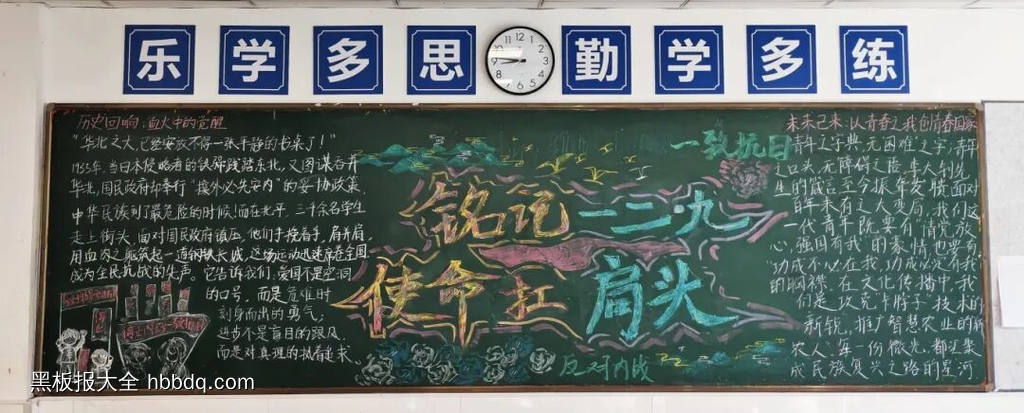 乐学多思 勤学多练
历史回响:血火中的觉醒
"华北之大,已经安放不得一张平静的书桌了!"
1935年,当日本侵略者的铁蹄践踏东北,又图谋吞并
华北,国民政府却奉行"攘外必先安内"的妥协政策,
中华民族到了最危险的时候!而在北平,三千余名学生
走上街头,面对国民政府镇压,他们手挽着手,肩并肩,
用血肉之躯筑起一道钢铁长城,这场运动迅速席卷全国
成为全民抗战的先声。它告诉我们,爱国不是空洞
的口号,而是危难时
刻身而出的勇气;
进步不是盲目的跟风
而是对真理的执着追求
一致抗日
铭记一二·九
使命扛肩头
反对内战
未来已来:以青春之我创青春国家
青年之字典,无困难之字,青年
之口头,无障碍之语,李大钊先
生的箴言至今振奋发聩,面对
百年未有之大变局,我们这
一代青年既要有"情党放
心,强国有我"的豪情也要有
"功成不必在我,功成必定有我"
的胸襟,在文化传播中,我
们是攻克"卡脖子"技术的
新锐,推广智慧农业的新
农人,每一份微光,都定集
成民族复兴之路的星河
黑板报大全 hbbdq.com